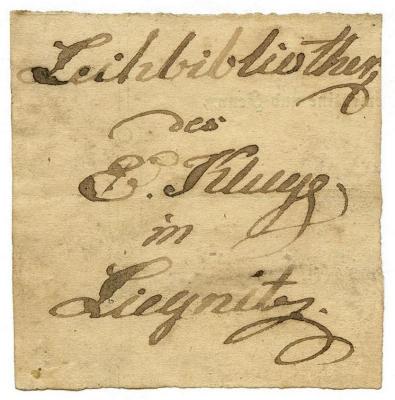 Leihbibliothek
des
E. Kluge
in
Liegnitz.